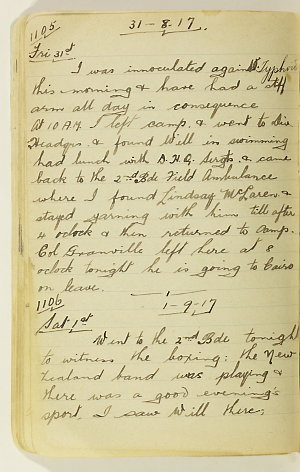 1105
31-8.17.
Fri 31st
I was innoculated against Typhoid
this morning & have had a stiff
arm all day in consequence
At 10 A.M. I left camp & went to Div
Headqrs. & found Will in swimming
had lunch with D.H.Q. Sergts & came
back to the 2nd Bde Field Ambulance
where I found Lindsay McLaren &
stayed yarning with him till after
4 oclock & then returned to camp.
Col Granville left here at 8
oclock tonight he is going to Cairo
on leave.
1106
1-9-17
Sat 1st
Went to the 2nd Bde tonight
to witness the boxing: the New
Zealand band was playing &
there was a good evening's
sport, I saw Will there,